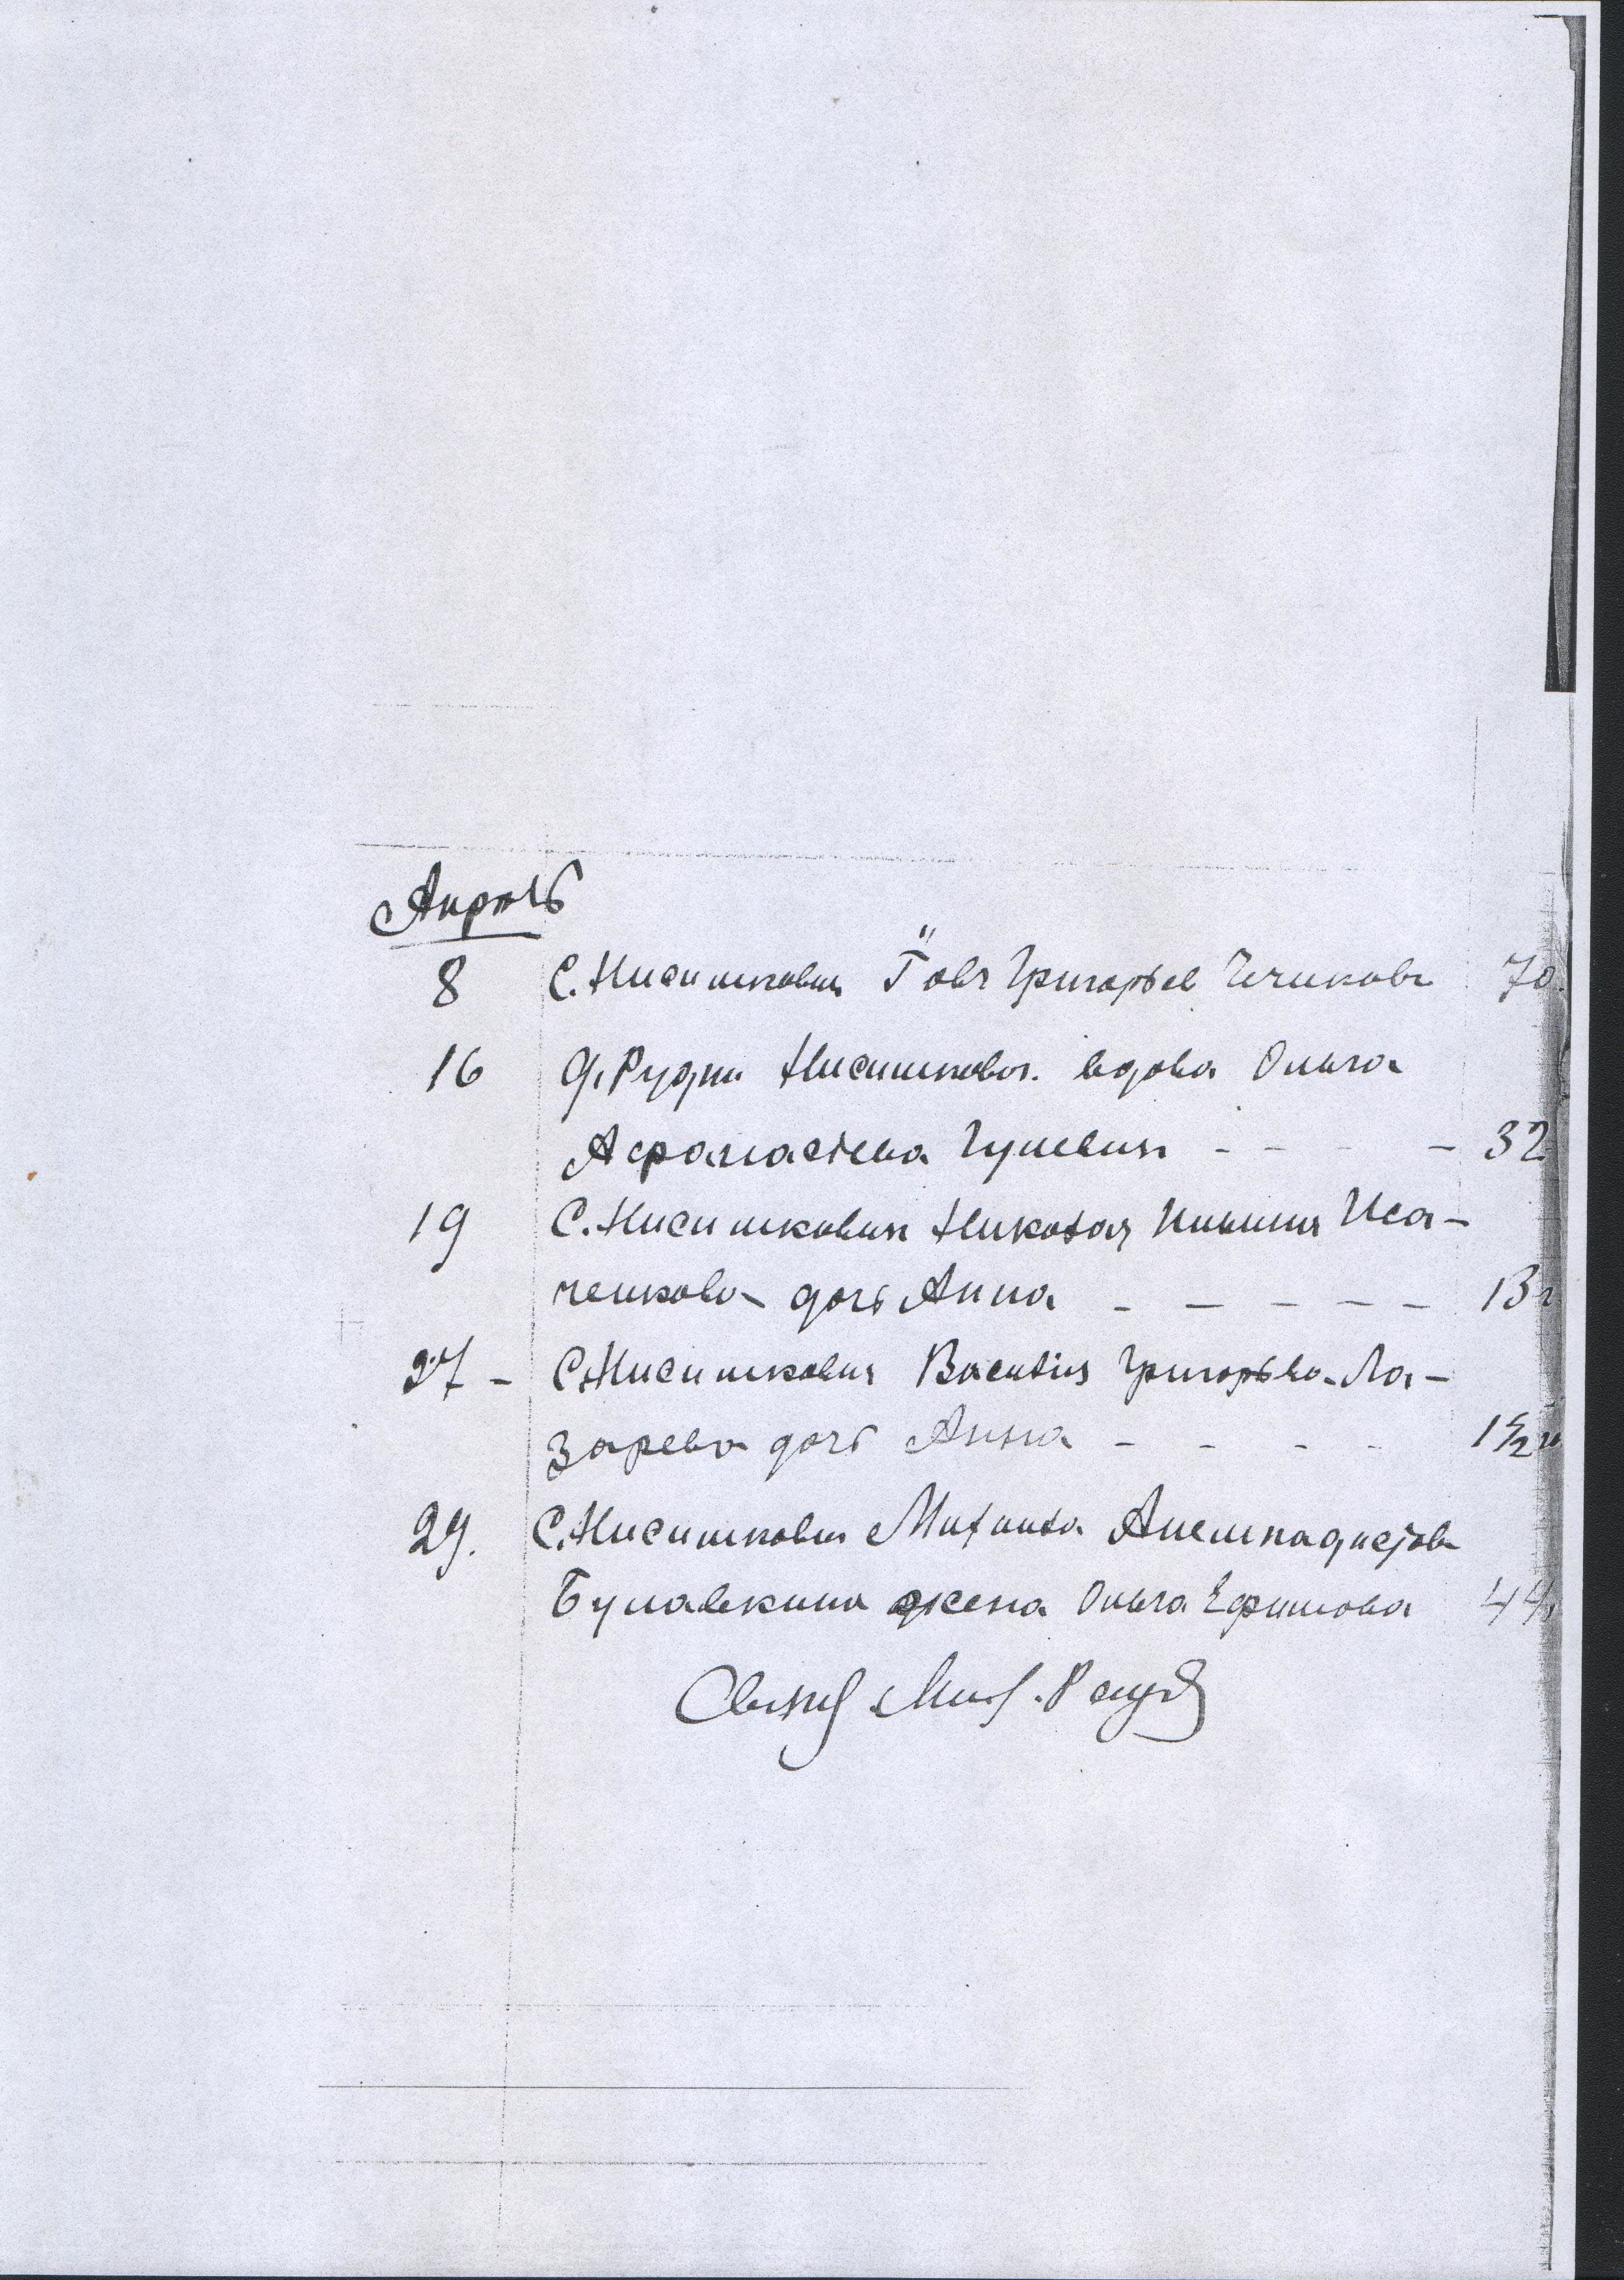 Апрѣль
8 С. Нисимковичи Іовъ Григорьев 70
16 Д. Рудни Нисимков. вдова Ольга
Афанасіева - - - - 32
19 С. Нисимковичи Николая Иса-
ченкова дочь Анна - - - - - 13
27 - С. Нисимковичи Василія Григорьева Ла-
зарева дочь Анна - - - - 1 1/2
29. С. Нисимковичи Михаила
Булавкина жена Ольга Ефимова 44